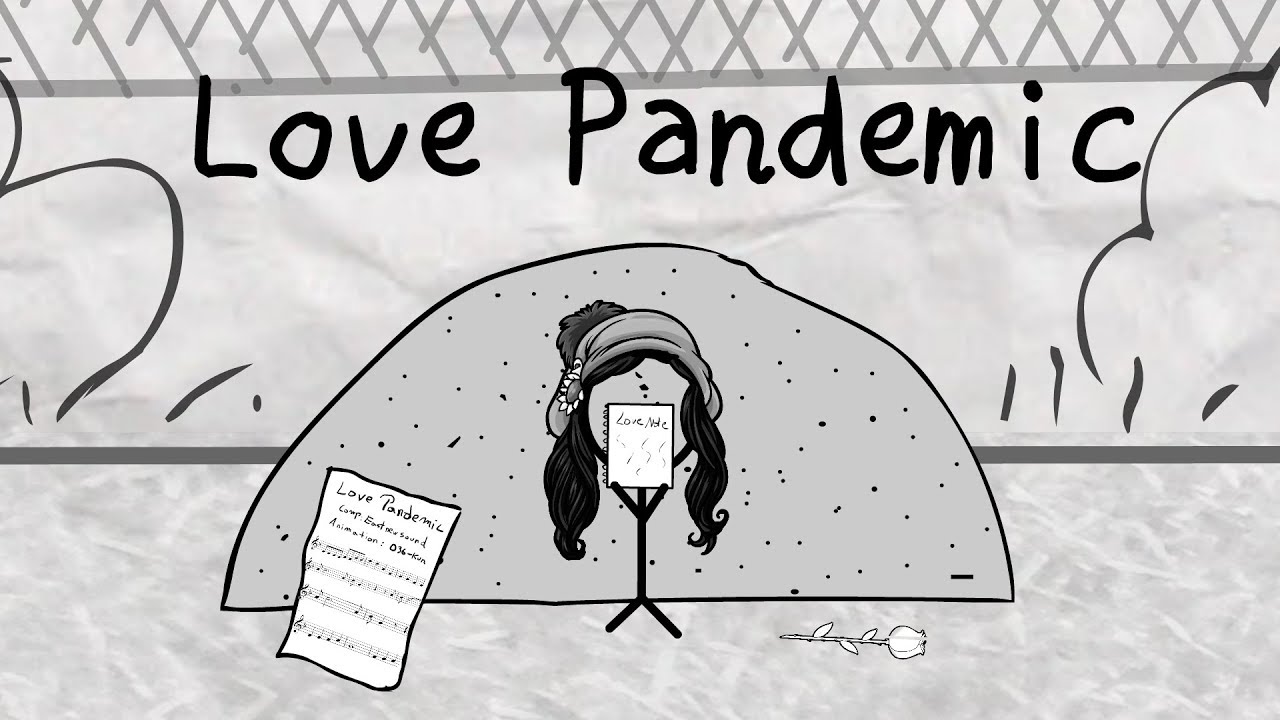 Love Pandemic
Love Note
Love Pandemic
Comp. Eastnewsound
Animation : 036-kun